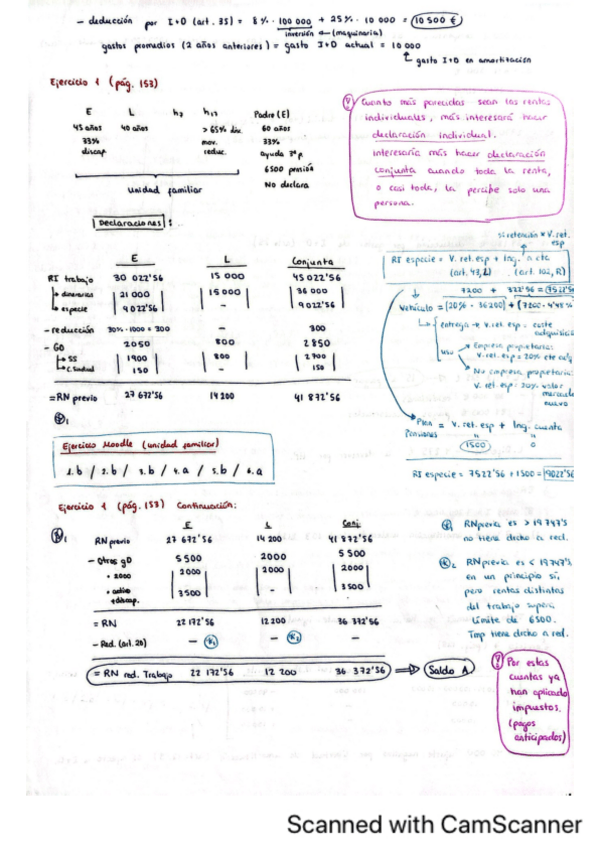 - deducción por I+D (art. 35) = 8% · 100 000 + 25% · 10 000 = 10 500 €
inversión (maquinaria)
gastos promedios (2 años anteriores) = gasto I+D actual = 10 000
gasto I+D en amortización
Ejercicio 1 (pág. 153)
E L h2 h17 Padre (E)
45 años 40 años > 65% dis. 60 años
33% mov. 33%
discap. reduc. ayuda 3ª p
6500 pensión
No declara
Unidad familiar
Cuanto más parecidas sean las rentas
individuales, más interesará hacer
declaración individual.
Interesaría más hacer declaración
conjunta cuando toda la renta,
o casi toda, la percibe solo una
persona.
Declaraciones:
E L Conjunta
RI trabajo 30 022'56 15 000 45 022'56
dinerarias 21 000 15 000 36 000
especie 9 022'56 - 9 022'56
- reducción 30% · 1000 = 300 - 300
- GD 2050 800 2 850
SS 1900 800 2700
C. Sindical 150 - 150
= RN previo 27 672'56 14 200 41 872'56
1
si retención * V. ret. esp
RI especie = V. ret. esp + Ing. a cta
(art. 43, 2) (art. 102, R)
7200 + 322'56 = 7522'56
Vehículo = (20% · 36200) +
entrega → V. ret esp = coste adquisición
uso
Empresa propietaria:
V. ret. esp = 20% cte adq
No empresa propietaria:
V. ret esp: 20% valor
mercado
nuevo
Plan Pensiones = V. ret. esp + Ing. cuenta
1500 0
RI especie = 7522'56 + 1500 = 9022'56
Ejercicio Moodle (unidad familiar)
1. b / 2. b / 3. b / 4. a / 5. b / 6. a
Ejercicio 1 (pág. 153) Continuación:
1
E L Conj.
RN previo 27 672'56 14 200 41 872'56
- Otros gD 5 500 2000 5 500
• 2000 2000 2000 2000
• activo + discap. 3500 - 3500
= RN 22 172'56 12 200 36 372'56
- Red. (art. 20) - 1 - 2 -
= RN red. Trabajo 22 172'56 12 200 36 372'56 ⇒ Saldo A
RN previa es > 19 747'5
no tiene dcho a red.
2 RN previa es < 19 747'5
en un principio sí,
pero rentas distintas
del trabajo supera
límite de 6500.
Tmp tiene dcho a red.
Por estas
cuentas ya
han aplicado
impuestos.
(pagos
anticipados)
Scanned with CamScanner